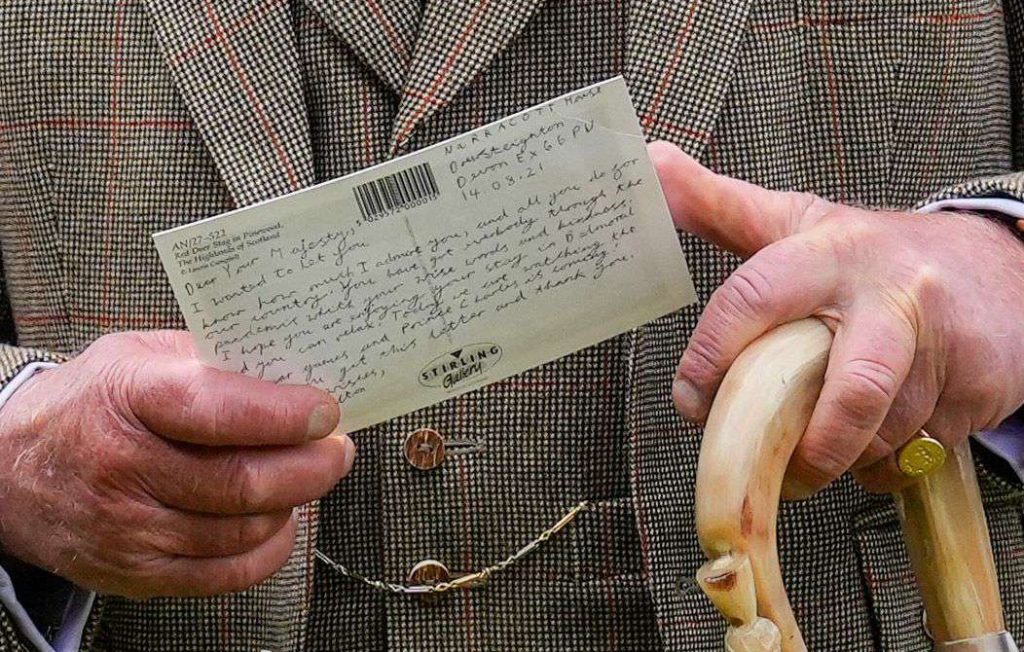 NARRACOTT House
Drewsteignton
Devon EX6 6PU
14.08.21
ANJ27-S22
Red Deer Stag in Pinewood,
The Highlands of Scotland
© Laurie Campbell
Dear Your Majesty,
I wanted to let you
know how much I admire you, and all you do for
our country. You have got everybody through the
pandemic with your wise words and kindness.
I hope you are enjoying your stay in Balmoral
d you can relax. Today we sat watching the
games and Prince Charles is coming
you get this letter and thank you.
wishes,
STIRLING
Gallery